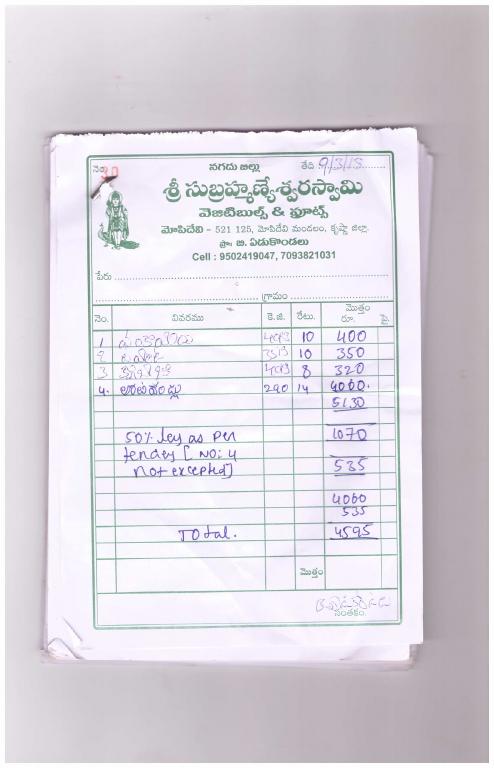 నెం. 30 నగదు బిల్లు తేది 9/3/13
శ్రీ సుబ్రహ్మణ్యేశ్వరస్వామి
వెజిటిబుల్స్ & ఫ్రూట్స్
మోపిదేవి - 521 125, మోపిదేవి మండలం, కృష్ణా జిల్లా.
ప్రొ: బి. ఏడుకొండలు
Cell : 9502419047, 7093821031
పేరు
గ్రామం
నెం. వివరము కె.జి. రేటు. మొత్తం రూ. పై.
1 10 400
2 10 350
3 8 320
4. 290 14 4060.
5130
1070
50% ley as per
tender [ NO: 4
not excepted]
535
4060
535
Total. 4595
మొత్తం
సంతకం.